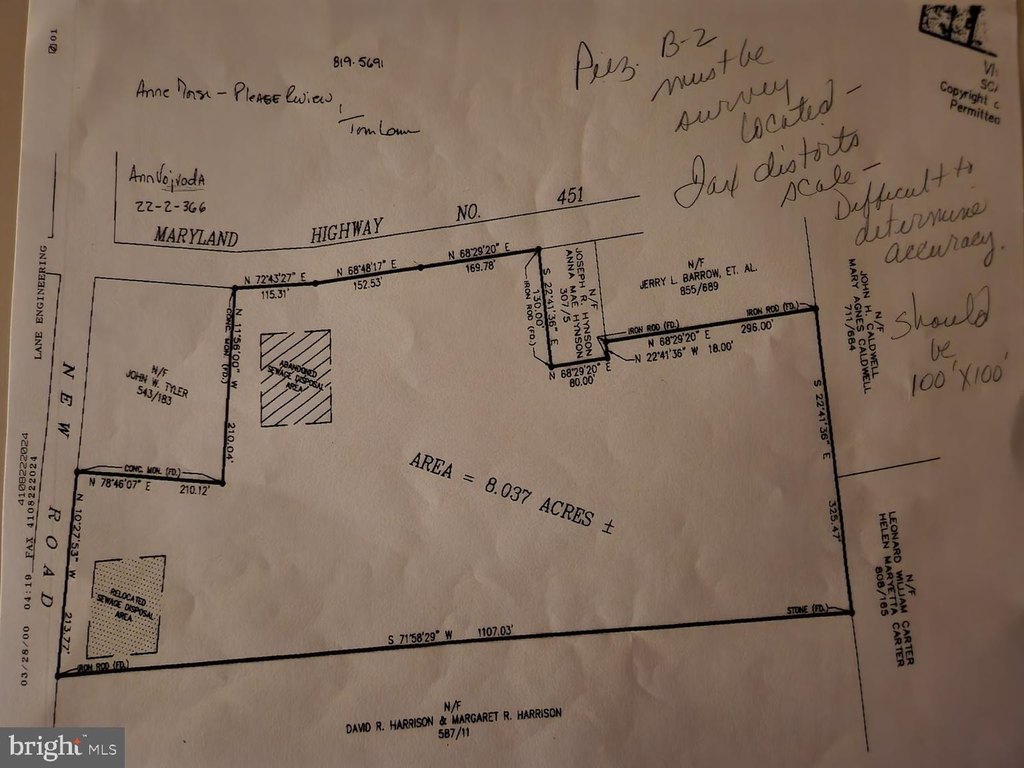 01
819-5691
Anne Morse - PLEASE Review,
Ann Vojvoda
22-2-366
Piez. B-2
must be
survey
located -
Fax distorts
scale -
Difficult to
determine
accuracy.
should
be
100' X 100'
Copyright
Permitted
MARYLAND HIGHWAY NO. 451
LANE ENGINEERING
4108222024
03/28/00 04:19 FAX 4108222024
NEW ROAD
N 72°43'27" E
115.31'
N 68°48'17" E
152.53'
N 68°29'20" E
169.78'
IRON ROD (FD.)
S 22°41'36" E
130.00'
N/F
JOSEPH R. HYNSON
ANNA MAE HYNSON
307/5
N 68°29'20" E
80.00'
N 22°41'36" W 18.00'
IRON ROD (FD.)
N 68°29'20" E
296.00'
IRON ROD (FD.)
N/F
JERRY L. BARROW, ET. AL.
855/689
N/F
JOHN H. CALDWELL
MARY AGNES CALDWELL
711/684
S 22°41'36" E
325.47'
N/F
LEONARD WILLIAM CARTER
HELEN MARYETTA CARTER
808/185
N/F
JOHN W. TYLER
543/183
CONC. MON. (FD.)
N 11°58'00" W
210.04'
ABANDONED
SEWAGE DISPOSAL
AREA
CONC. MON. (FD.)
N 78°46'07" E
210.12'
AREA = 8.037 ACRES ±
N 10°27'53" W
213.77'
RELOCATED
SEWAGE DISPOSAL
AREA
IRON ROD (FD.)
S 71°58'29" W 1107.03'
STONE (FD.)
N/F
DAVID R. HARRISON & MARGARET R. HARRISON
587/11
bright MLS